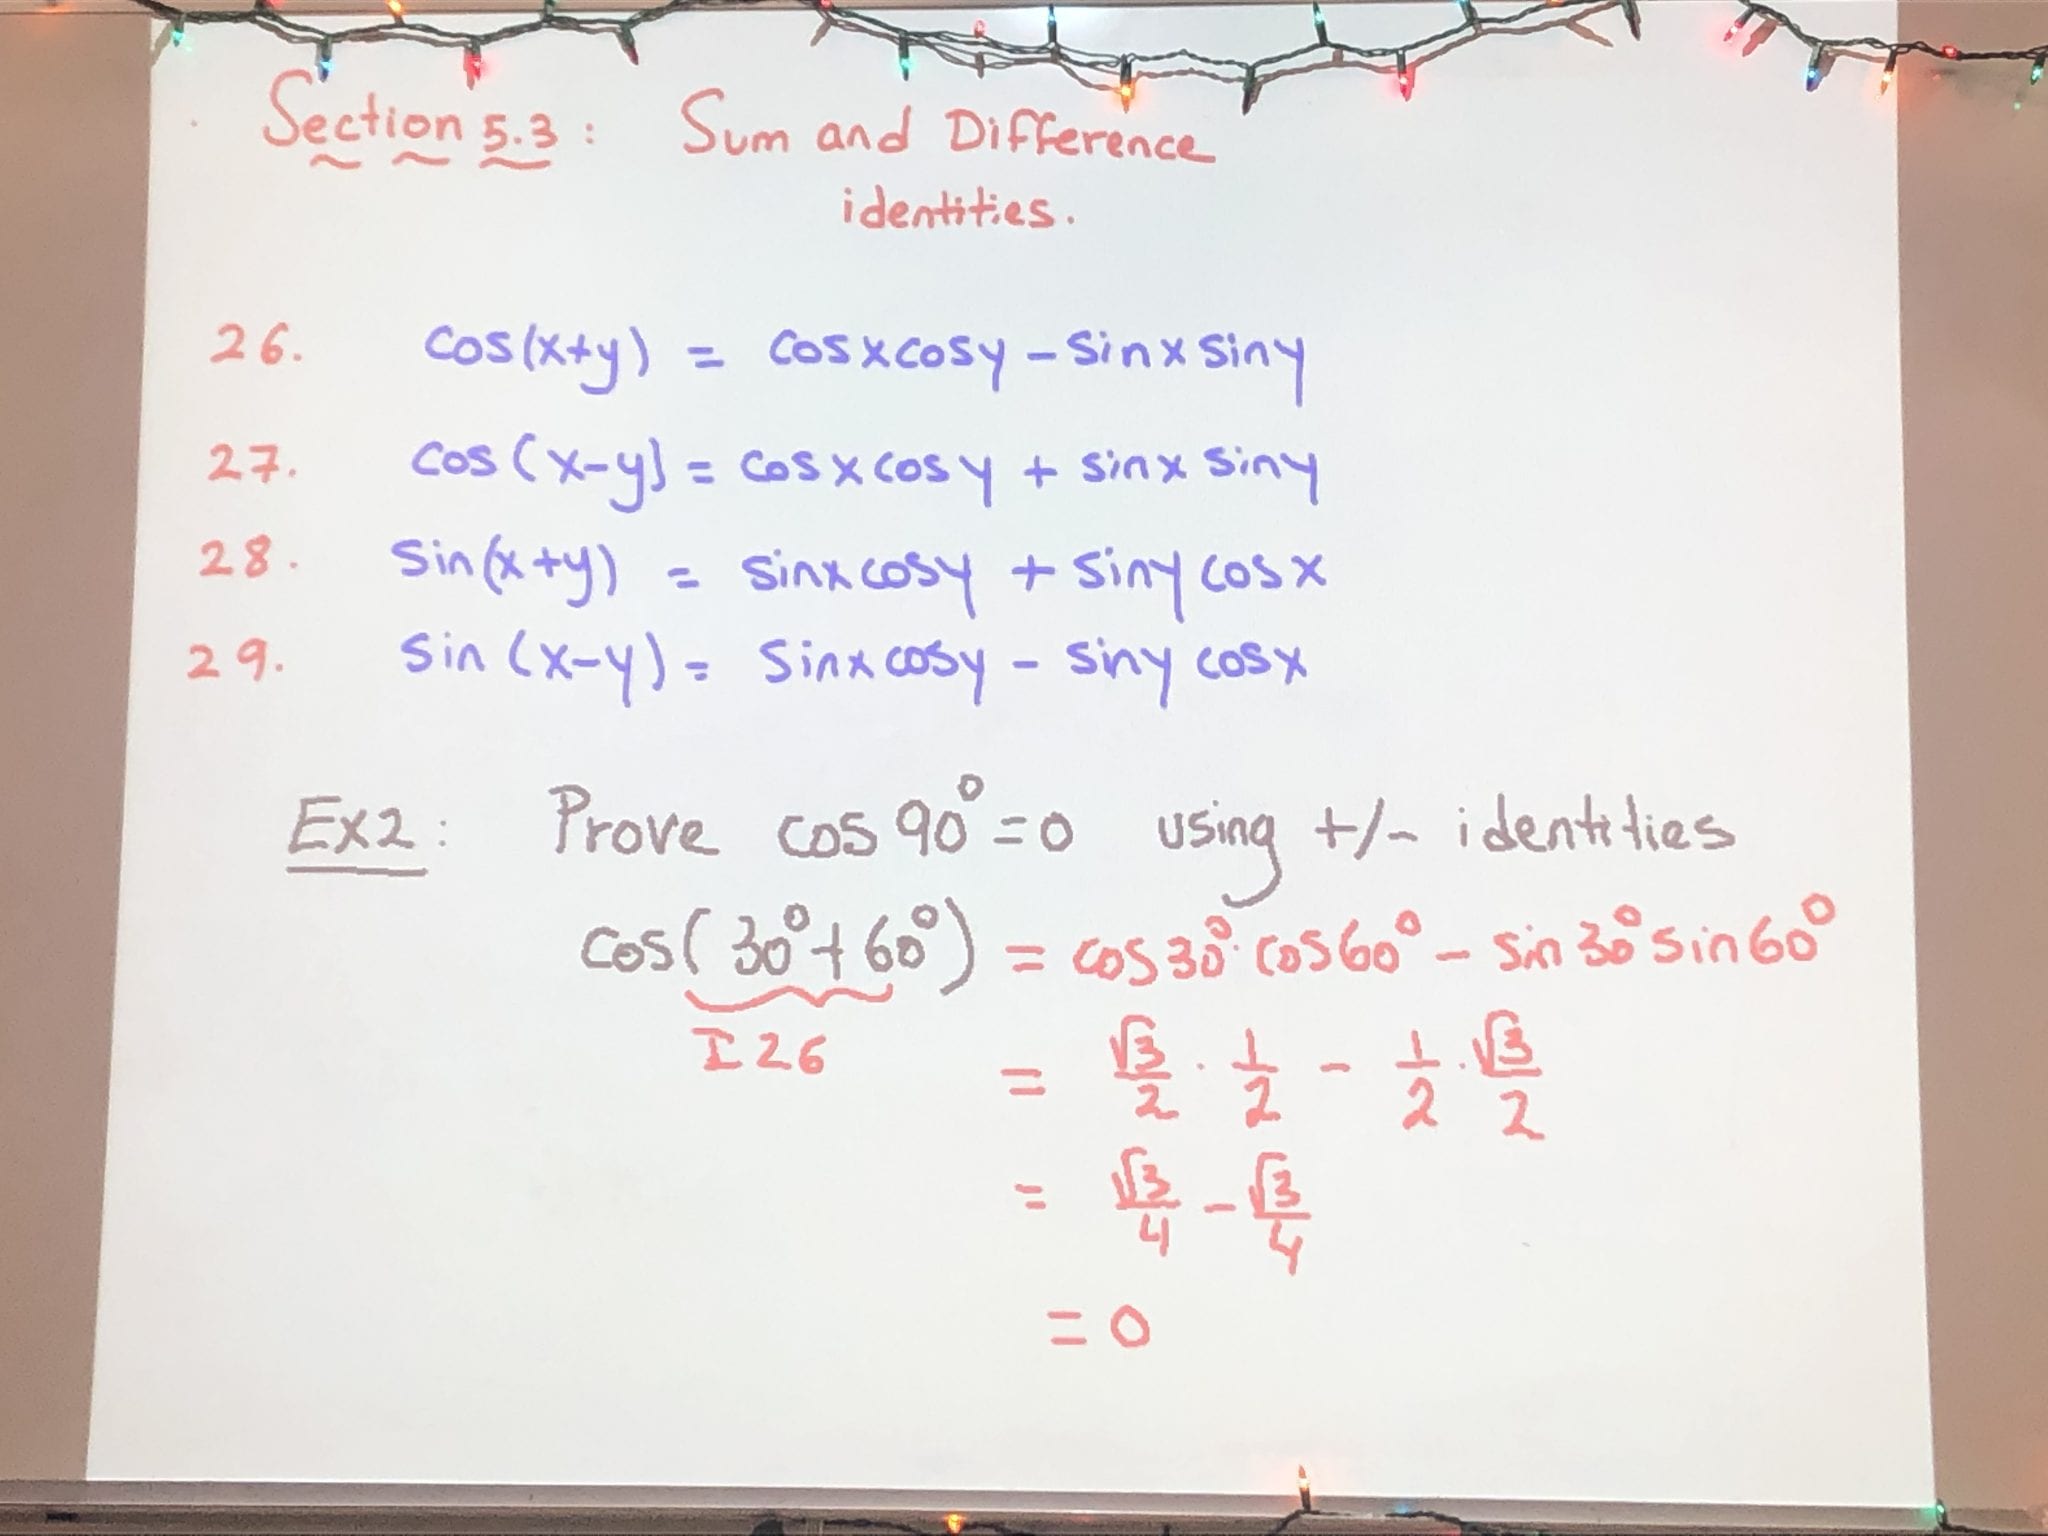 Section 5.3: Sum and Difference
identities.
26. cos(x+y) = cosxcosy - sinx siny
27. cos(x-y) = cosx cosy + sinx siny
28. sin(x+y) = sinxcosy + siny cosx
29. sin(x-y) = sinxcosy - siny cosx
Ex2: Prove cos 90° = 0 using +/- identities
cos(30°+60°) = cos30°·cos60° - sin30°sin60°
I26
= √3/2 · 1/2 - 1/2 · √3/2
= √3/4 - √3/4
= 0